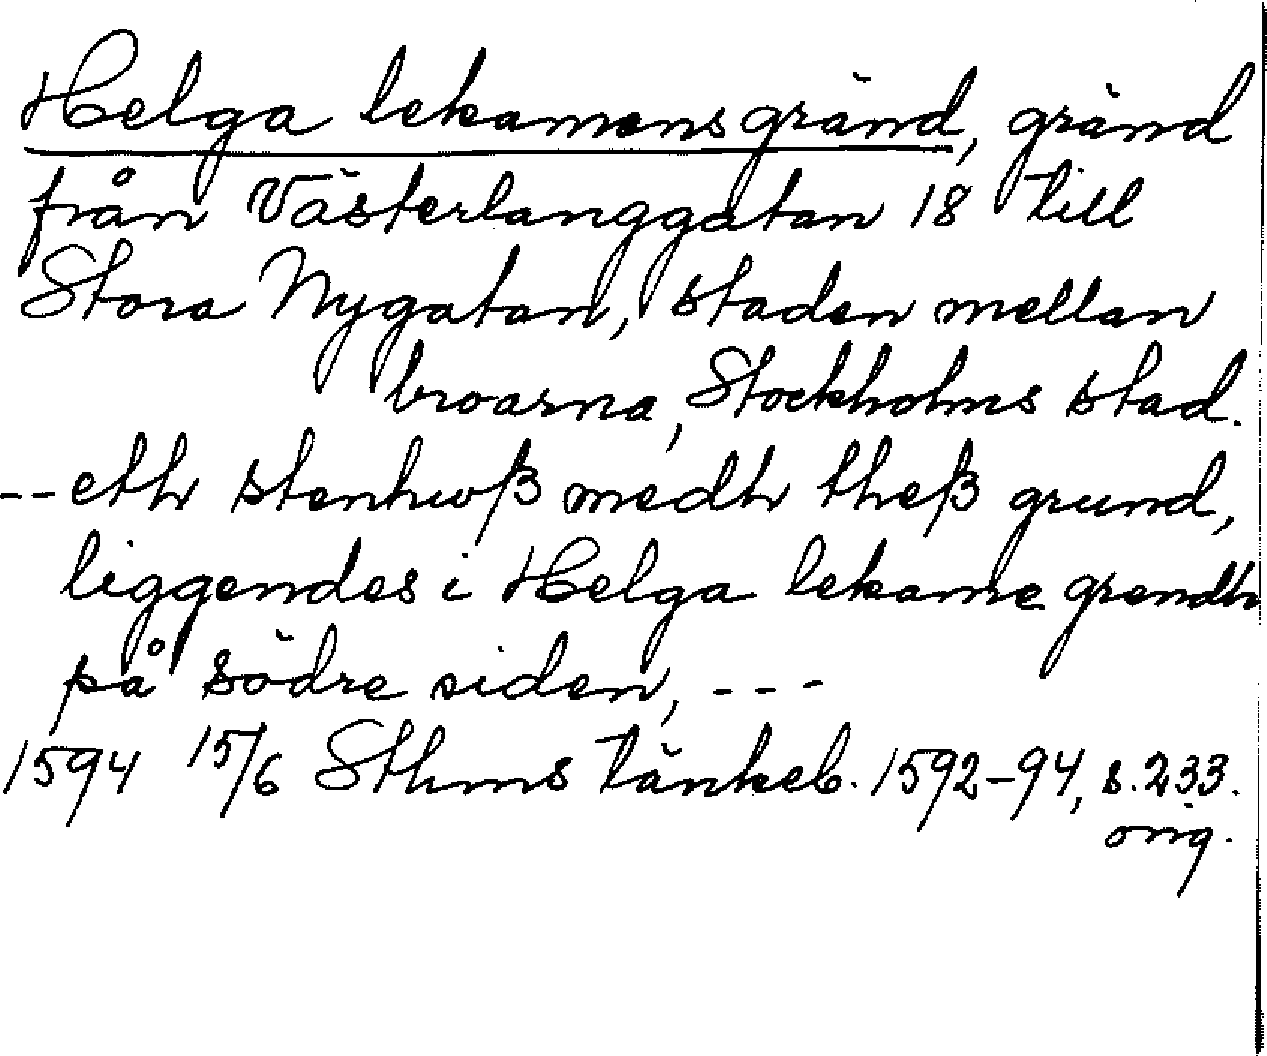 Helga lekamens gränd, gränd
från Västerlanggatan 18 till
Stora Nygatan, staden mellan
broarna, Stockholms stad.
-- eth stenhwß medh theß grund,
liggendes i Helga lekame grendh
på södre siden, ---
1594 15/6 Sthms tänkeb. 1592-94, s. 233.
orig.